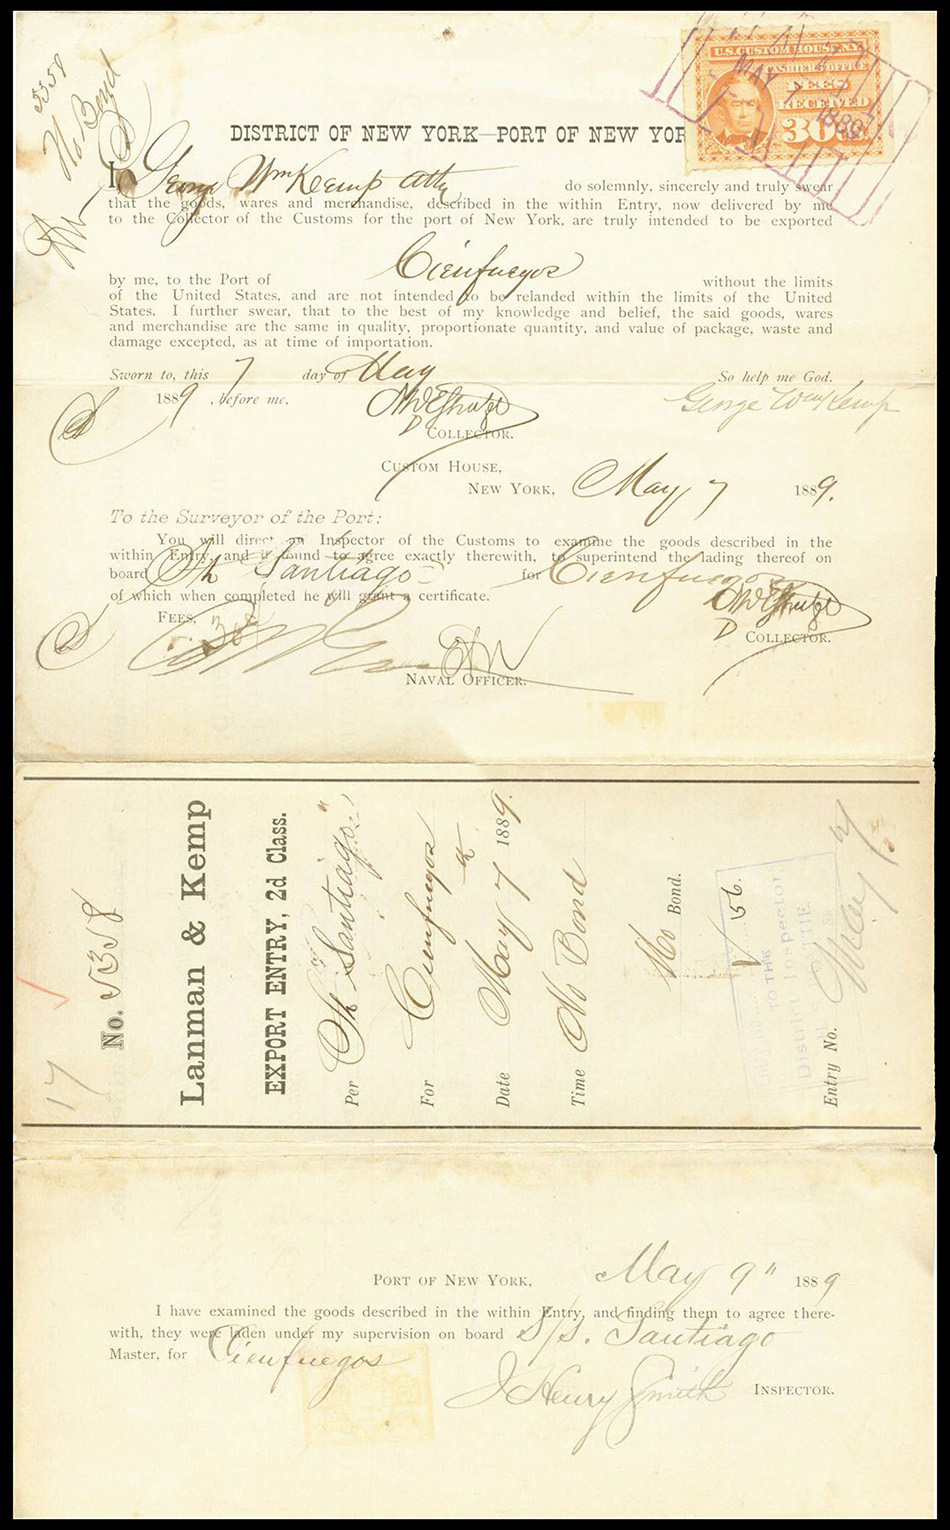 5358
No Bond
U.S. CUSTOM HOUSE, N.Y.
CASHIER'S OFFICE
FEES
RECEIVED
30
MAY 7
1889
DISTRICT OF NEW YORK—PORT OF NEW YOR
I, George Wm Kemp Atty do solemnly, sincerely and truly swear
that the goods, wares and merchandise, described in the within Entry, now delivered by me
to the Collector of the Customs for the port of New York, are truly intended to be exported
by me, to the Port of Cienfuegos without the limits
of the United States, and are not intended to be relanded within the limits of the United
States. I further swear, that to the best of my knowledge and belief, the said goods, wares
and merchandise are the same in quality, proportionate quantity, and value of package, waste and
damage excepted, as at time of importation.
Sworn to, this 7 day of May So help me God.
1889, before me, George Wm Kemp
D COLLECTOR.
CUSTOM HOUSE,
NEW YORK, May 7 1889.
To the Surveyor of the Port:
You will direct an Inspector of the Customs to examine the goods described in the
within Entry, and if found to agree exactly therewith, to superintend the lading thereof on
board Str Santiago for Cienfuegos
of which when completed he will grant a certificate.
FEES, 30c
D COLLECTOR.
NAVAL OFFICER.
17
No. 5358
Lanman & Kemp
EXPORT ENTRY, 2d Class.
Per Str "Santiago"
For Cienfuegos
Date May 7 1889.
Time No Bond
No Bond.
156.
TO THE
District Inspector
Entry No. May 7/
PORT OF NEW YORK, May 9" 1889
I have examined the goods described in the within Entry, and finding them to agree there-
with, they were laden under my supervision on board S/S. Santiago
Master, for Cienfuegos
J Henry Smith INSPECTOR.